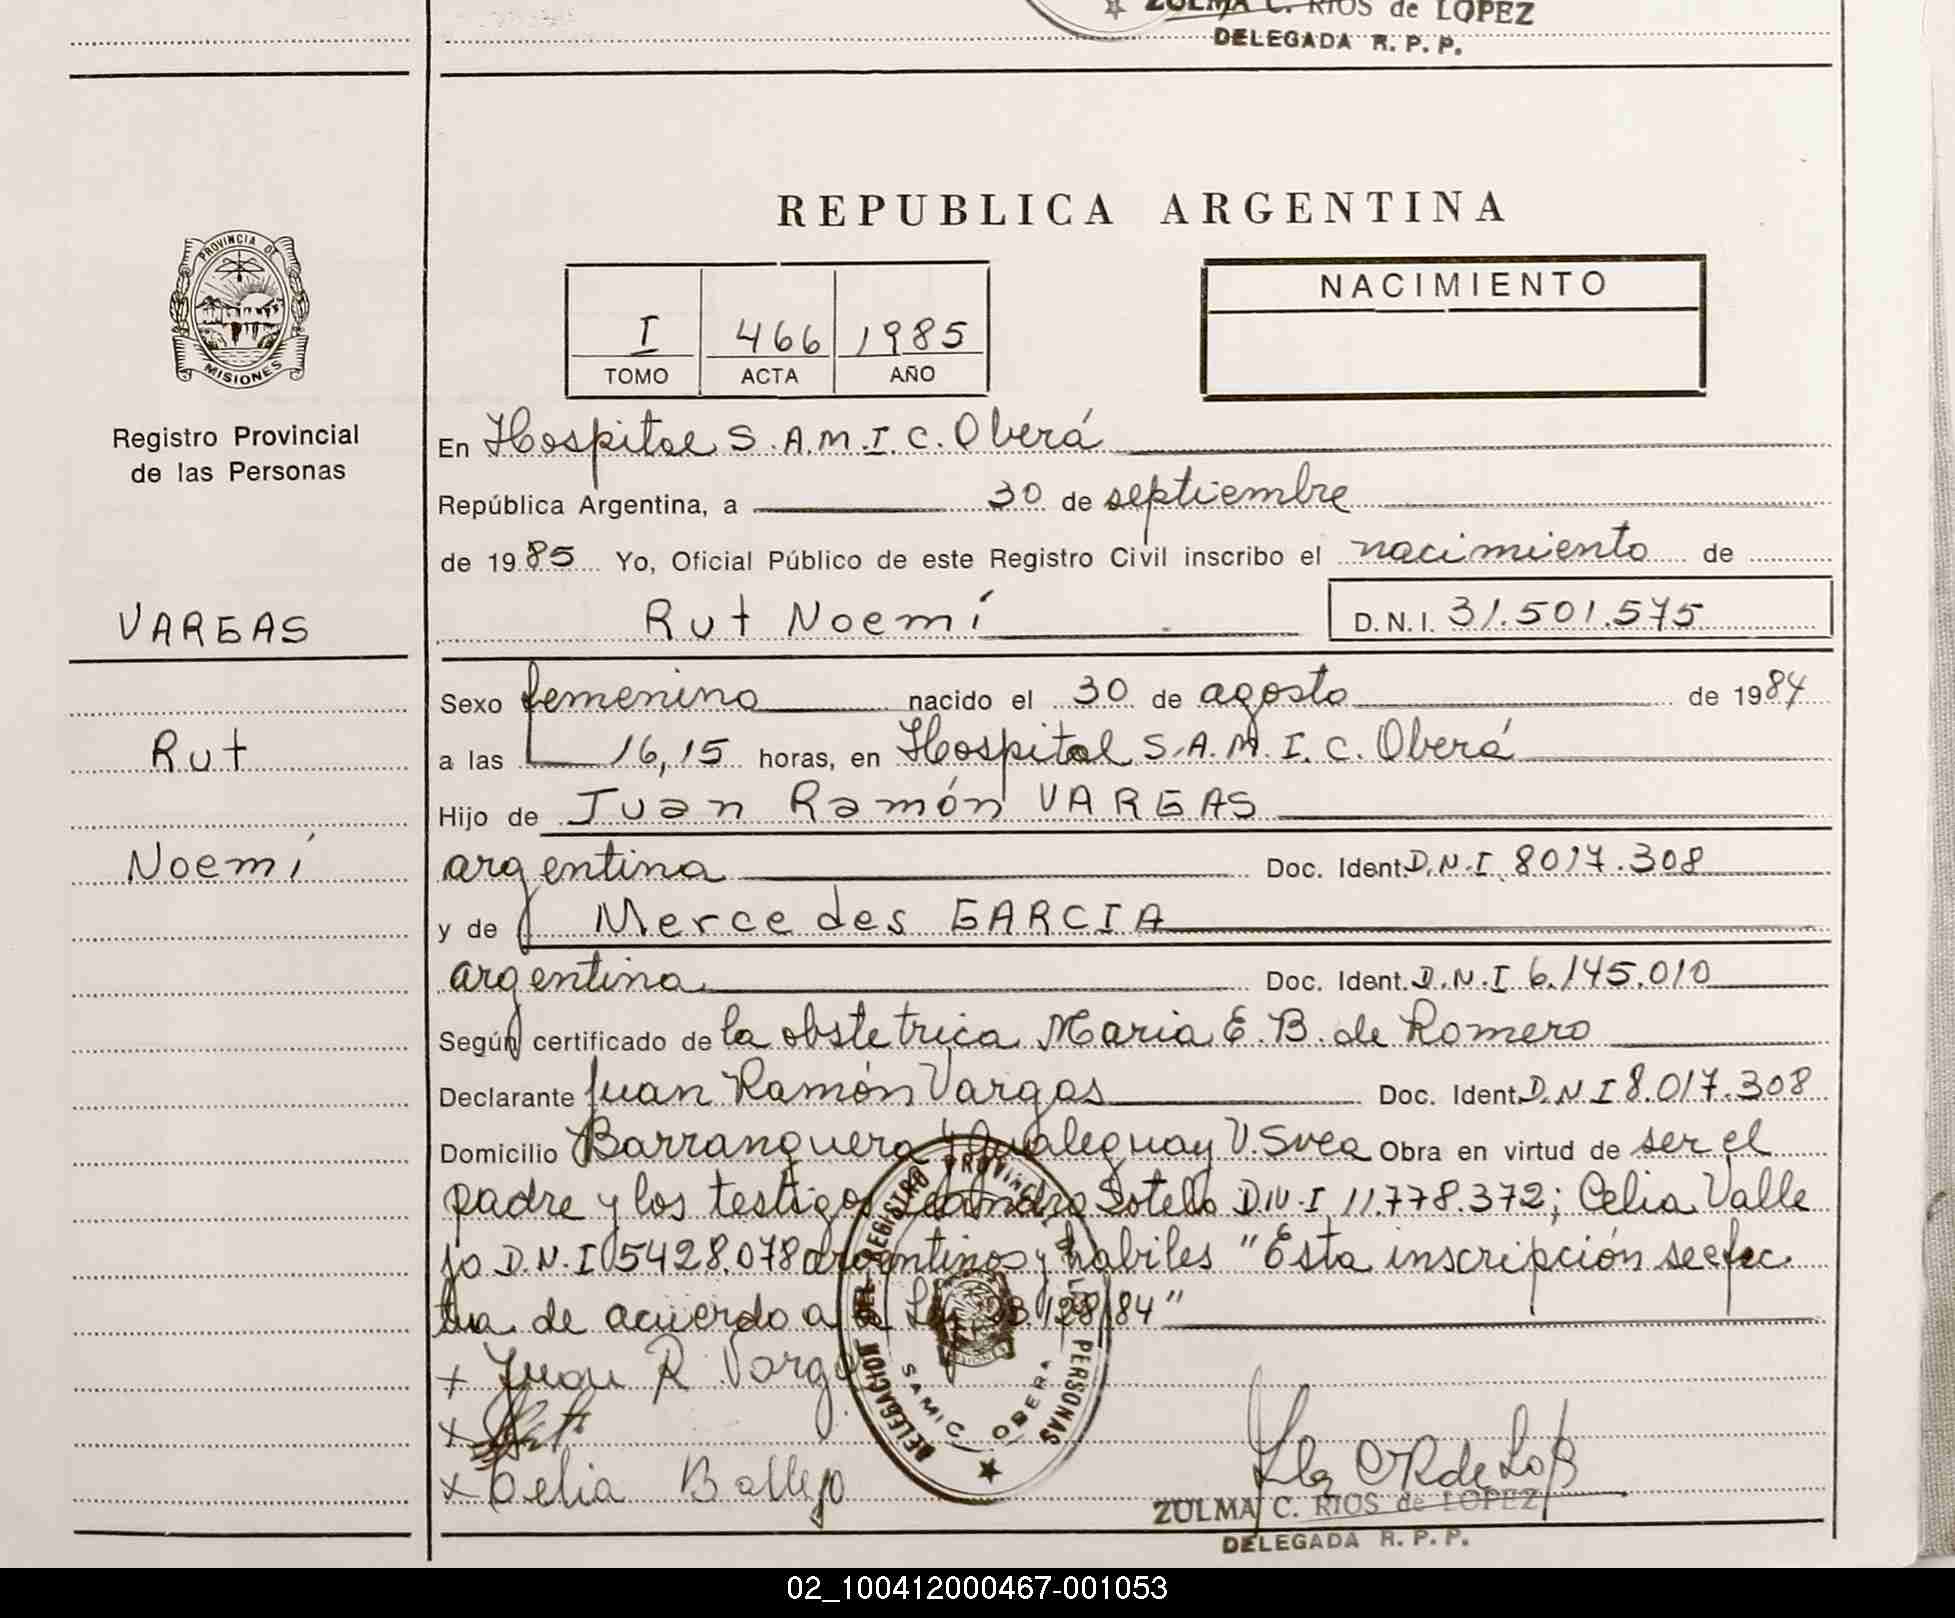 ZULMA C. RIOS de LOPEZ
DELEGADA R. P. P.
REPUBLICA ARGENTINA
PROVINCIA DE
MISIONES
Registro Provincial
de las Personas
I 466 1985
TOMO ACTA AÑO
NACIMIENTO
En Hospital S.A.M.I.C. Oberá
República Argentina, a 30 de septiembre
de 1985 Yo, Oficial Público de este Registro Civil inscribo el nacimiento de
VARGAS
Rut Noemí D.N.I. 31.501.575
Sexo femenino nacido el 30 de agosto de 1984
Rut
a las 16,15 horas, en Hospital S.A.M.I.C. Oberá
Hijo de Juan Ramón VARGAS
Noemí
argentina Doc. Ident. D.N.I. 8017.308
y de Mercedes GARCIA
argentina Doc. Ident. D.N.I 6.145.010
Según certificado de la obstetrica Maria E. B. de Romero
Declarante Juan Ramón Vargas Doc. Ident. D.N.I 8.017.308
Domicilio Barranquera y Gualeguay V. Svea Obra en virtud de ser el
padre y los testigos Leandro Sotello D.N.I 11.778.372; Celia Valle
jo D.N.I 5428.078 argentinos y habiles "Esta inscripción se efec
tua de acuerdo a la Ley 23.128/84"
DELEGACION DEL REGISTRO PROVINCIAL DE LAS PERSONAS
SAMIC OBERA
x Juan R Varga
x
x Celia Ballejo
ZULMA C. RIOS de LOPEZ
DELEGADA R. P. P.
02_100412000467-001053